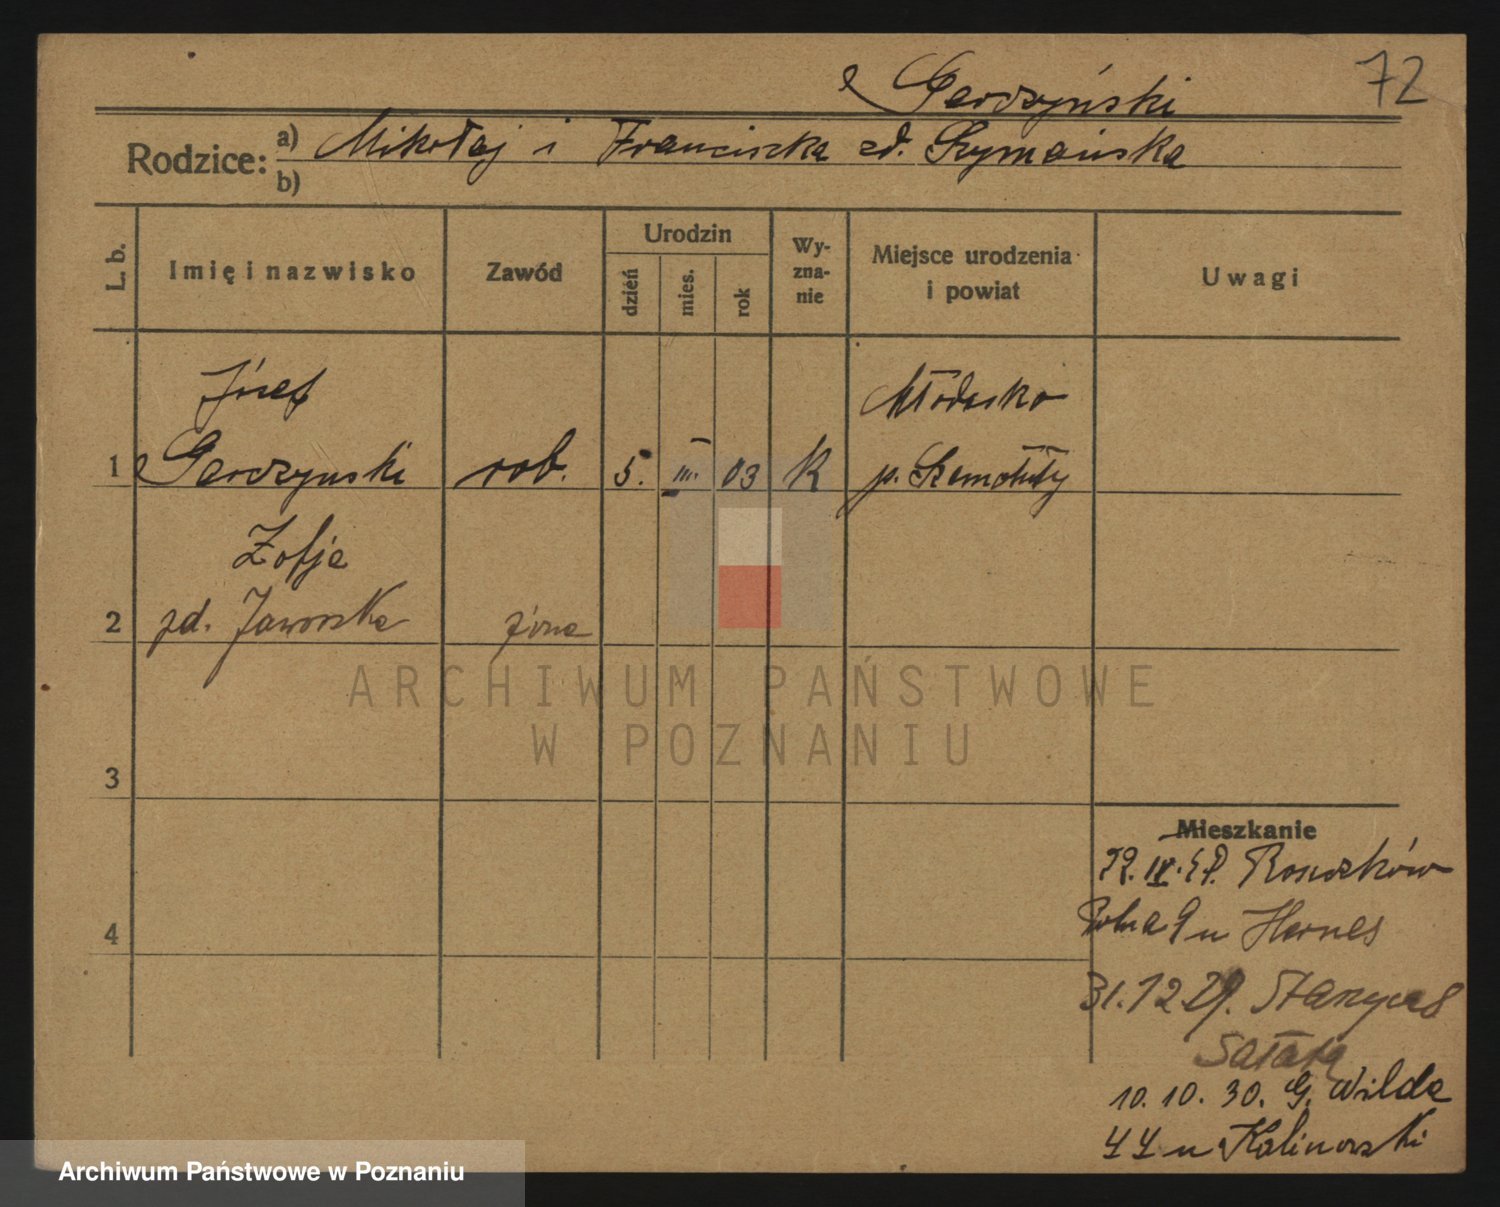 72
Gerczyński
Rodzice: a) Mikołaj i Franciszka zd. Szymańska
b)
L. b. Imię i nazwisko Zawód Urodzin dzień mies. rok Wy-zna-nie Miejsce urodzenia i powiat Uwagi
Józef Młodasko
1 Gerczynski rob. 5. III. 03 K p. Szamotuły
Zofja
2 zd. Jaworska żona
ARCHIWUM PAŃSTWOWE
W POZNANIU
3
Mieszkanie
Roszków
4
9 u Hernes
31.12 29.
Sałata
10. 10. 30. G. Wilda
44 u Kalinowski
Archiwum Państwowe w Poznaniu